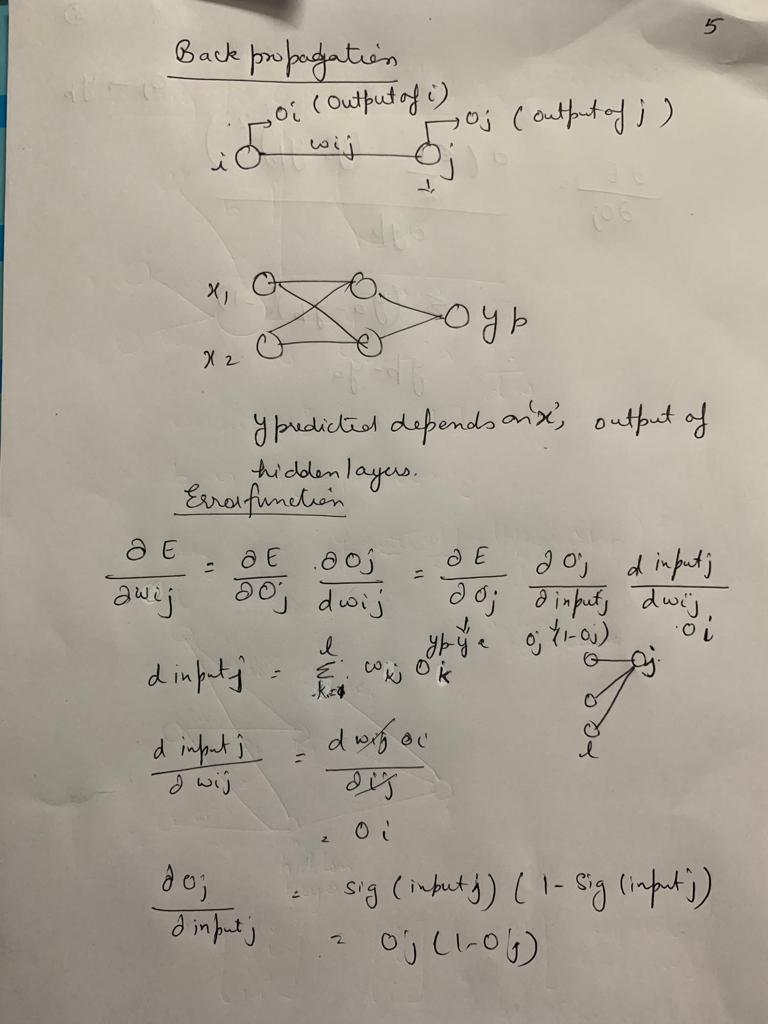 5
Back propagation
Oi (Output of i)
Oj (output of j)
i wij j
x1
x2
yp
y predicted depends on 'x', output of
hidden layers.
Error function
∂E/∂wij = ∂E/∂Oj ∂Oj/dwij = ∂E/∂Oj ∂Oj/∂inputj d inputj/dwij
yp-ya Oj(1-Oj) Oi
d inputj = l Σ k=1 wkj Ok
Oj
l
d inputj/∂wij = d wij oi/∂ij
= Oi
∂Oj/∂inputj = sig (inputj) (1 - Sig (inputj)
= Oj (1-Oj)